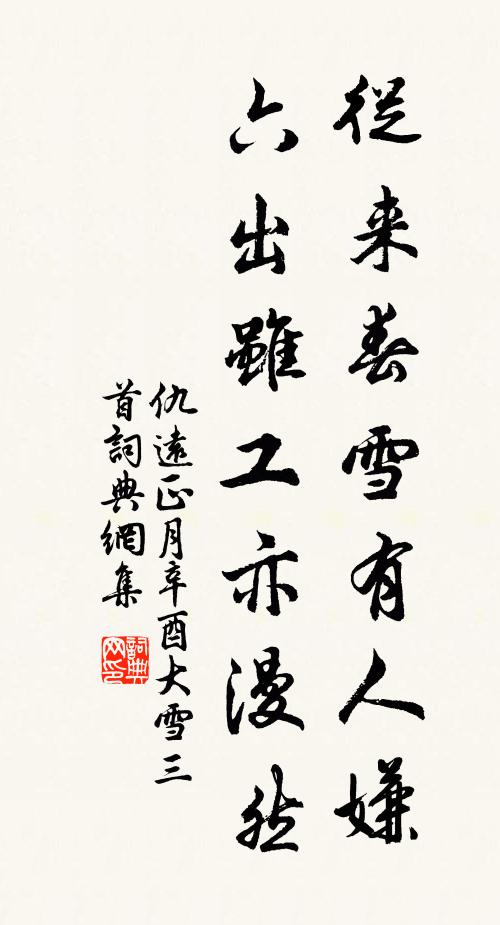 從来春雪有人嫌
六出雖工亦漫然
仇遠正月辛酉大雪三
首詞典網集
詞典網印